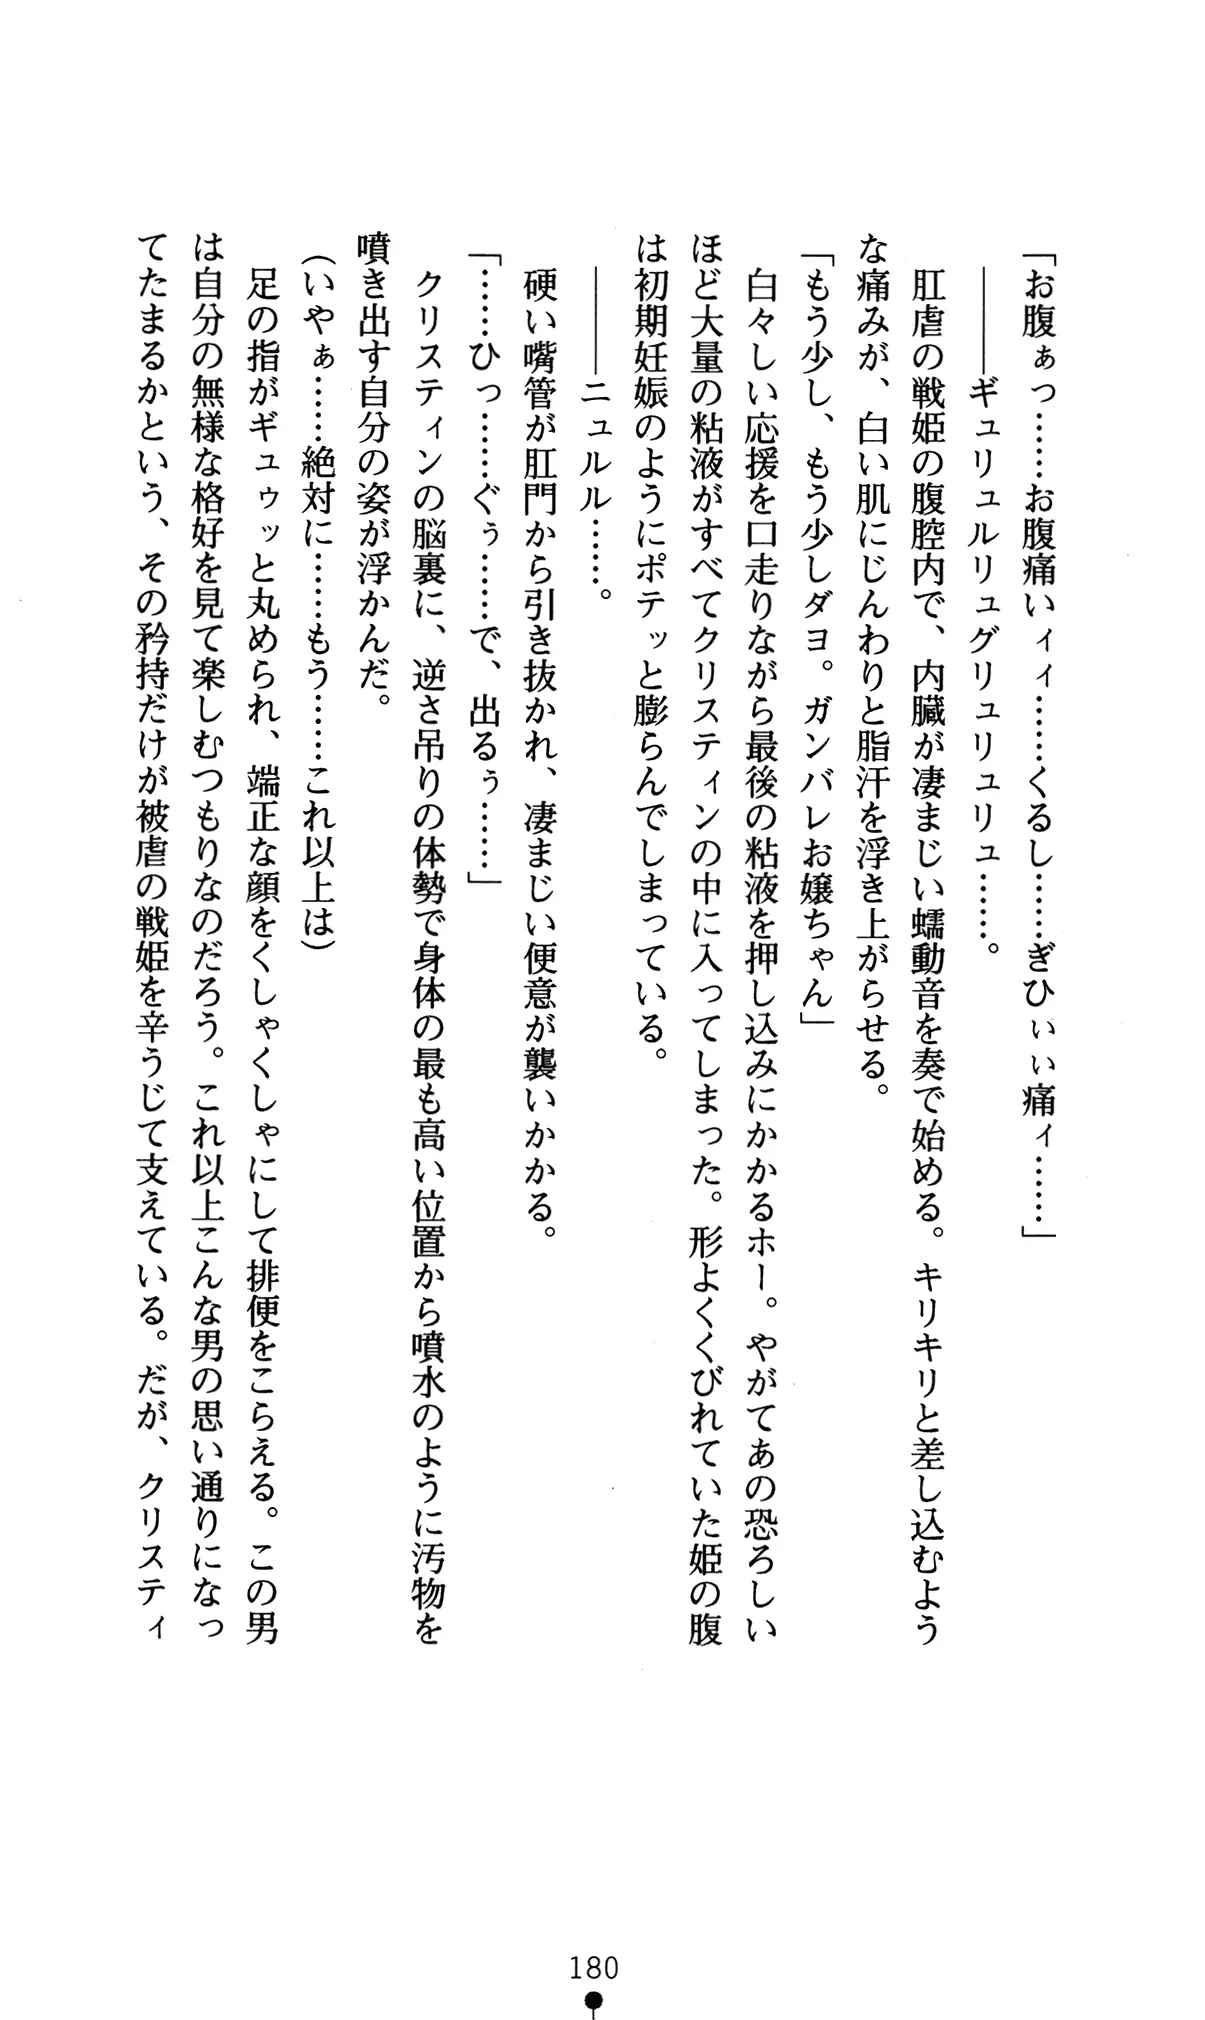 「お腹ぁっ……お腹痛いィィ……くるし……ぎひぃぃ痛ィ……」
――ギュリュルリュグリュリュリュ……。
肛虐の戦姫の腹腔内で、内臓が凄まじい蠕動音を奏で始める。キリキリと差し込むよう
な痛みが、白い肌にじんわりと脂汗を浮き上がらせる。
「もう少し、もう少しダヨ。ガンバレお嬢ちゃん」
白々しい応援を口走りながら最後の粘液を押し込みにかかるホー。やがてあの恐ろしい
ほど大量の粘液がすべてクリスティンの中に入ってしまった。形よくくびれていた姫の腹
は初期妊娠のようにポテッと膨らんでしまっている。
――ニュルル……。
硬い嘴管が肛門から引き抜かれ、凄まじい便意が襲いかかる。
「……ひっ……ぐぅ……で、出るぅ……」
クリスティンの脳裏に、逆さ吊りの体勢で身体の最も高い位置から噴水のように汚物を
噴き出す自分の姿が浮かんだ。
(いやぁ……絶対に……もう……これ以上は)
足の指がギュゥッと丸められ、端正な顔をくしゃくしゃにして排便をこらえる。この男
は自分の無様な格好を見て楽しむつもりなのだろう。これ以上こんな男の思い通りになっ
てたまるかという、その矜持だけが被虐の戦姫を辛うじて支えている。だが、クリスティ
180